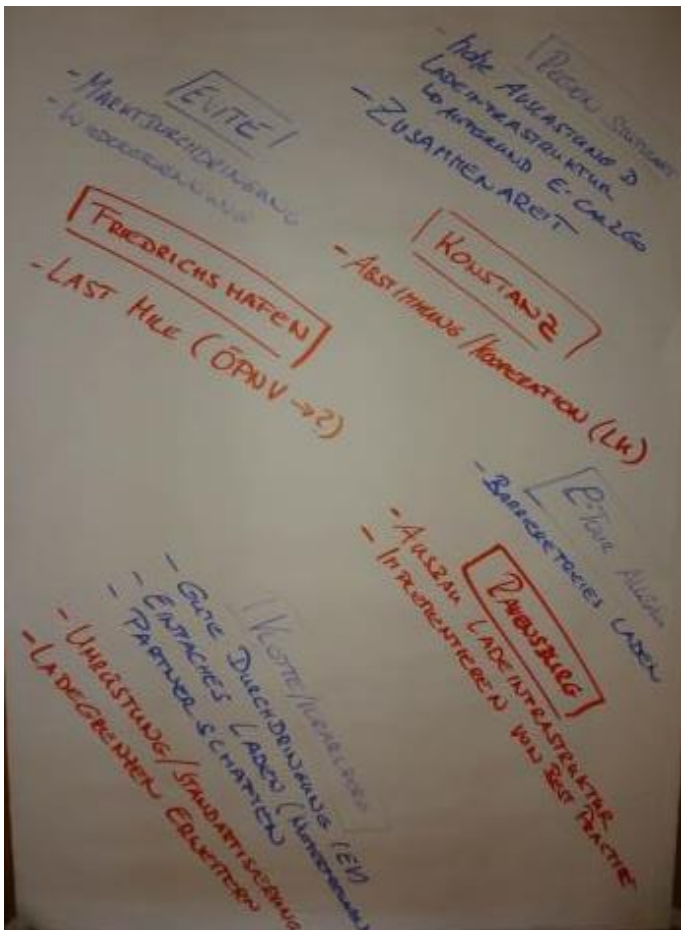 EVITE
- MARKTDURCHDRINGUNG
- WIEDERERKENNUNG
REGION STUTTGART
- hohe AUSLASTUNG D
LADEINFRASTRUKTUR
AUFGRUND E-CAR2GO
- ZUSAMMENAREIT
FRIEDRICHSHAFEN
- LAST MILE (ÖPNV → ?)
KONSTANZ
- ABSTIMMUNG / KOOPERATION (LK)
e-Tour Allgäu
- BARRIEREFREIES LADEN
RAVENSBURG
- AUSBAU LADEINFRASTRUKTUR
- IMPLEMENTIEREN VON BEST PRACTISE
- GUTE DURCHDRINGUNG (EV)
- EINFACHES LADEN
- PARTNERSCHAFTEN
- UMRÜSTUNG / STANDARTISIERUNG
- LADEGRENZEN ERWEITERN